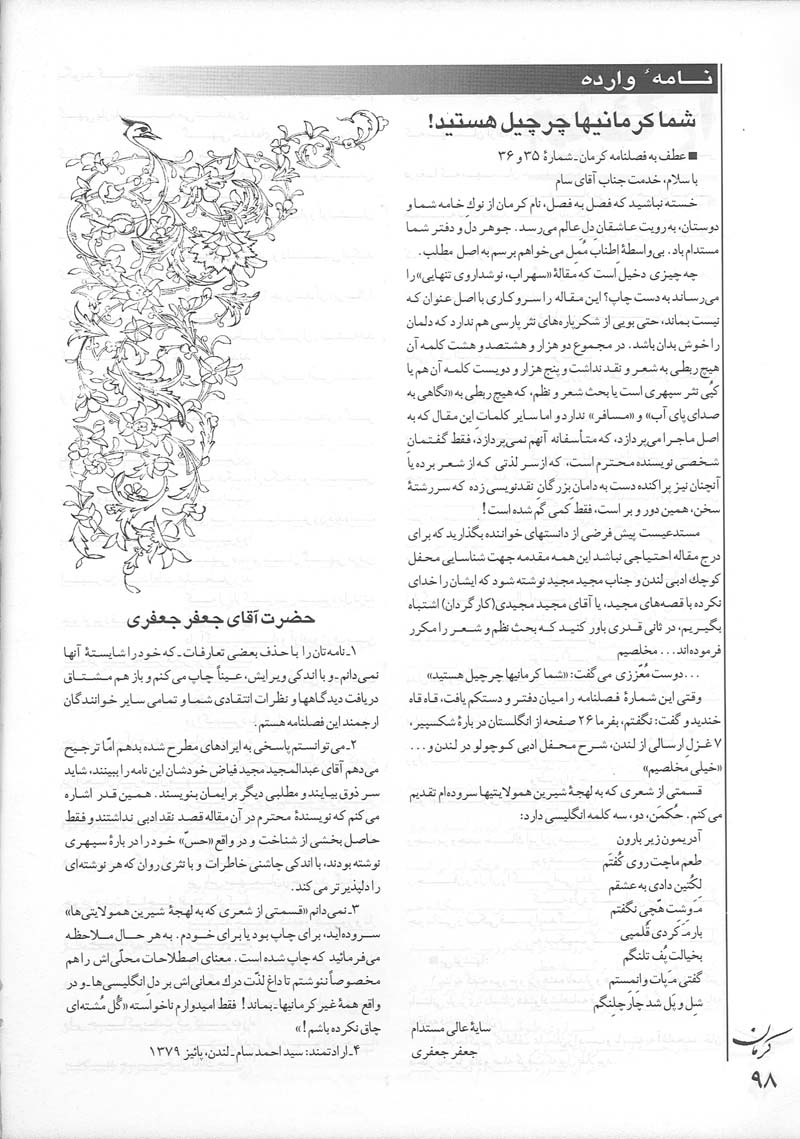 نامهٔ وارده
شما کرمانیها چرچیل هستید!
■ عطف به فصلنامه کرمان ـ شمارهٔ ۳۵ و ۳۶
با سلام، خدمت جناب آقای سام
خسته نباشید که فصل به فصل، نام کرمان از نوك خامه شما و
دوستان، به‌رویت عاشقانِ دل عالم می‌رسد. جوهر دل و دفتر شما
مستدام باد. بی‌واسطهٔ اِطناب مُمَل می‌خواهم برسم به اصل مطلب.
چه چیزی دخیل است که مقالهٔ «سهراب، نوشداروی تنهایی» را
می‌رساند به دست چاپ؟ این مقاله را سر و کاری با اصل عنوان که
نیست بماند، حتی بویی از شکرپاره‌های نثر پارسی هم ندارد که دلمان
را خوش بدان باشد. در مجموع دو هزار و هشتصد و هشت کلمه آن
هیچ ربطی به شعر و نقد نداشت و پنج هزار و دویست کلمه آن هم یا
کپُی نثر سپهری است یا بحث شعر و نظم، که هیچ ربطی به «نگاهی به
صدای پای آب» و «مسافر» ندارد و اما سایر کلماتِ این مقال که به
اصل ماجرا می‌پردازد، که متأسفانه آنهم نمی‌پردازد، فقط گفتمان
شخصی نویسنده محترم است، که از سر لذتی که از شعر برده یا
آنچنان نیز پراکنده دست به دامان بزرگان نقدنویسی زده که سررشتهٔ
سخن، همین دور و بر است، فقط کمی گم شده است!
مستدعیست پیش فرضی از دانستهای خواننده بگذارید که برای
درج مقاله احتیاجی نباشد این همه مقدمه جهت شناسایی محفل
کوچك ادبی لندن و جناب مجید مجید نوشته شود که ایشان را خدای
نکرده با قصه‌های مجید، یا آقای مجید مجیدی (کارگردان) اشتباه
بگیریم، در ثانی قدری باور کنید که بحث نظم و شعر را مکرر
فرموده‌اند... مخلصیم
...دوست مُعّززی می‌گفت: «شما کرمانیها چرچیل هستید»
وقتی این شمارهٔ فصلنامه را میان دفتر و دستکم یافت، قاه قاه
خندید و گفت: نگفتم، بفرما ۲۶ صفحه از انگلستان در بارهٔ شکسپیر،
۷ غزل اِرسالی از لندن، شرح محفل ادبی کوچولو در لندن و...
«خیلی مخلصیم»
قسمتی از شعری که به لهجهٔ شیرین همولایتیها سروده‌ام تقدیم
می‌کنم. حُکمَن، دو، سه کلمه انگلیسی دارد:
آدریمون زیر بارون
طعم ماچت روی کُفتَم
لکتین دادی به عشقم
مَ‌وِشت هچّی نگفتم
بارمَ‌کردی قُلمپی
بخیالت پُف تلنگم
گفتی مَ‌پات وانمستم
شِل و پَل شد چارچلِنگم
سایهٔ عالی مستدام
جعفر جعفری
حضرت آقای جعفر جعفری
۱ـ نامه‌تان را با حذف بعضی تعارفات ـ که خود را شایستهٔ آنها
نمی‌دانم ـ و با اندکی ویرایش، عیناً چاپ می‌کنم و باز هم مشتاق
دریافت دیدگاهها و نظرات انتقادی شما و تمامی سایر خوانندگان
ارجمند این فصلنامه هستم.
۲ـ می‌توانستم پاسخی به ایرادهای مطرح شده بدهم امّا ترجیح
می‌دهم آقای عبدالمجید مجید فیاض خودشان این نامه را ببینند، شاید
سر ذوق بیایند و مطلبی دیگر برایمان بنویسند. همین قدر اشاره
می‌کنم که نویسندهٔ محترم در آن مقاله قصد نقد ادبی نداشتند و فقط
حاصل بخشی از شناخت و در واقع «حسّ» خود را در بارهٔ سپهری
نوشته بودند، با اندکی چاشنی خاطرات و با نثری روان که هر نوشته‌ای
را دلپذیرتر می‌کند.
۳ـ نمی‌دانم «قسمتی از شعری که به لهجهٔ شیرین همولایتی‌ها»
سروده‌اید، برای چاپ بود یا برای خودم. به هر حال ملاحظه
می‌فرمائید که چاپ شده است. معنای اصطلاحات محلّی‌اش را هم
مخصوصاً ننوشتم تا داغ لذّت درك معانی‌اش بر دل انگلیسی‌ها ـ و در
واقع همهٔ غیر کرمانیها ـ بماند! فقط امیدوارم ناخواسته «کُل مُشته‌ای
چاق نکرده باشم!»
۴ـ ارادتمند: سید احمد سام ـ لندن، پائیز ۱۳۷۹
کرمان
۹۸